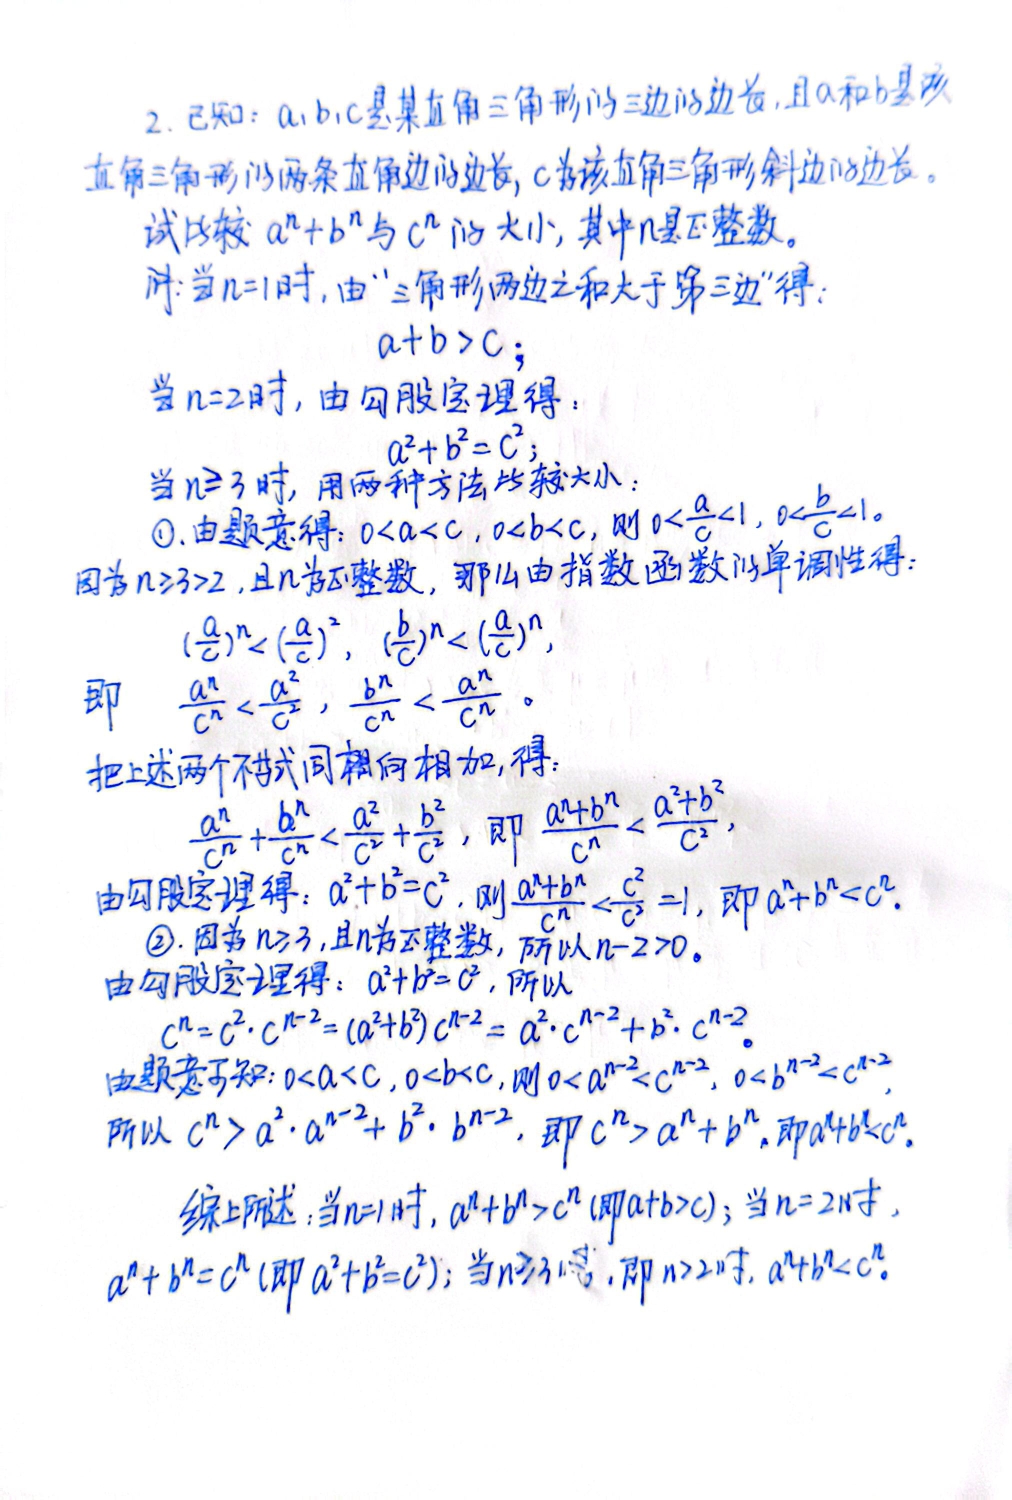 2. 已知: a, b, c是某直角三角形的三边的边长, 且a和b是该
直角三角形的两条直角边的边长, c为该直角三角形斜边的边长。
试比较 aⁿ+bⁿ与 cⁿ 的大小, 其中n是正整数。
解: 当n=1时, 由“三角形两边之和大于第三边”得:
a+b>c;
当n=2时, 由勾股定理得:
a²+b²=c²;
当n≥3时, 用两种方法比较大小:
①. 由题意得: 0<a<c, 0<b<c, 则 0<a/c<1, 0<b/c<1。
因为n≥3>2, 且n为正整数, 那么由指数函数的单调性得:
(a/c)ⁿ<(a/c)², (b/c)ⁿ<(a/c)ⁿ,
即 aⁿ/cⁿ<a²/c², bⁿ/cⁿ<aⁿ/cⁿ。
把上述两个不等式同向相加, 得:
aⁿ/cⁿ+bⁿ/cⁿ<a²/c²+b²/c², 即 (aⁿ+bⁿ)/cⁿ<(a²+b²)/c²,
由勾股定理得: a²+b²=c², 则(aⁿ+bⁿ)/cⁿ<c²/c²=1, 即aⁿ+bⁿ<cⁿ.
②. 因为n≥3, 且n为正整数, 所以n-2>0。
由勾股定理得: a²+b²=c², 所以
cⁿ=c²·cⁿ⁻²=(a²+b²)cⁿ⁻²=a²·cⁿ⁻²+b²·cⁿ⁻²。
由题意可知: 0<a<c, 0<b<c, 则0<aⁿ⁻²<cⁿ⁻², 0<bⁿ⁻²<cⁿ⁻²,
所以 cⁿ>a²·aⁿ⁻²+b²·bⁿ⁻², 即cⁿ>aⁿ+bⁿ, 即aⁿ+bⁿ<cⁿ.
综上所述: 当n=1时, aⁿ+bⁿ>cⁿ(即a+b>c); 当n=2时,
aⁿ+bⁿ=cⁿ(即a²+b²=c²); 当n≥3时, 即n>2时, aⁿ+bⁿ<cⁿ。